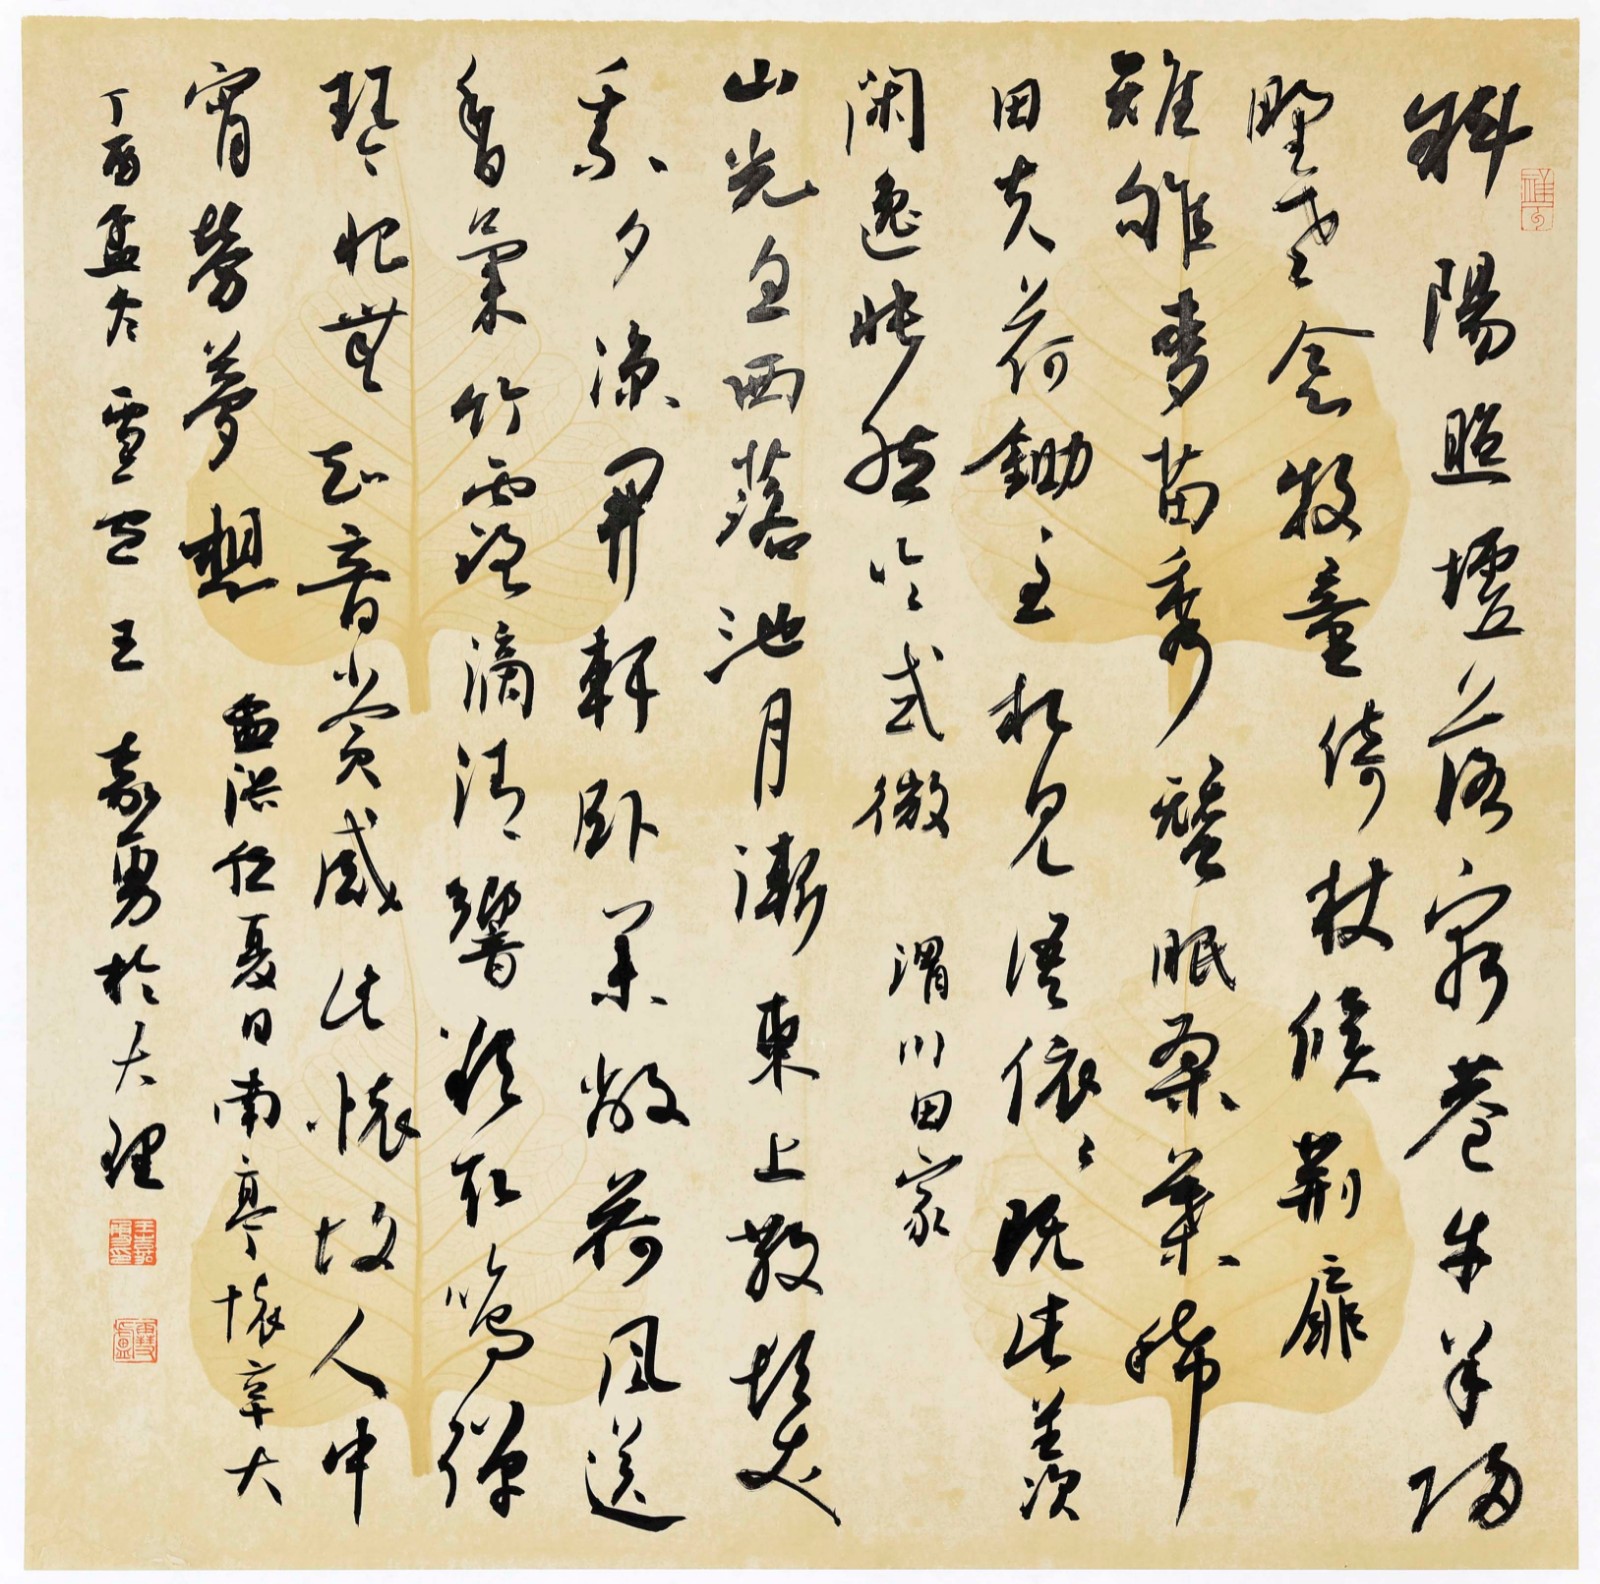 斜陽照墟落窮巷牛羊歸
野老念牧童倚杖候荊扉
雉雊麥苗秀蠶眠桑葉稀
田夫荷鋤至相見語依〻既此羨
閑逸悵然吟式微 渭川田家
山光忽西落池月漸東上散髮
乘夕涼開軒臥閑敞荷風送
香氣竹露滴清響欲取鳴彈
琴恨無知音賞感此懷故人中
宵勞夢想 孟浩然夏日南亭懷辛大
丁酉孟冬雪 王嘉勇於大理
王嘉勇印